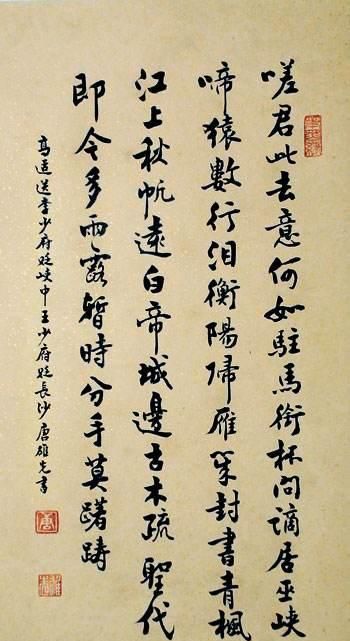 嗟君此去意何如駐馬銜杯問謫居巫峽
啼猿數行泪衡陽歸雁幾封書青楓
江上秋帆遠白帝城邊古木疏聖代
即今多雨露暫時分手莫躇躊
高適送李少府貶峽中王少府貶長沙 唐雄先書
唐